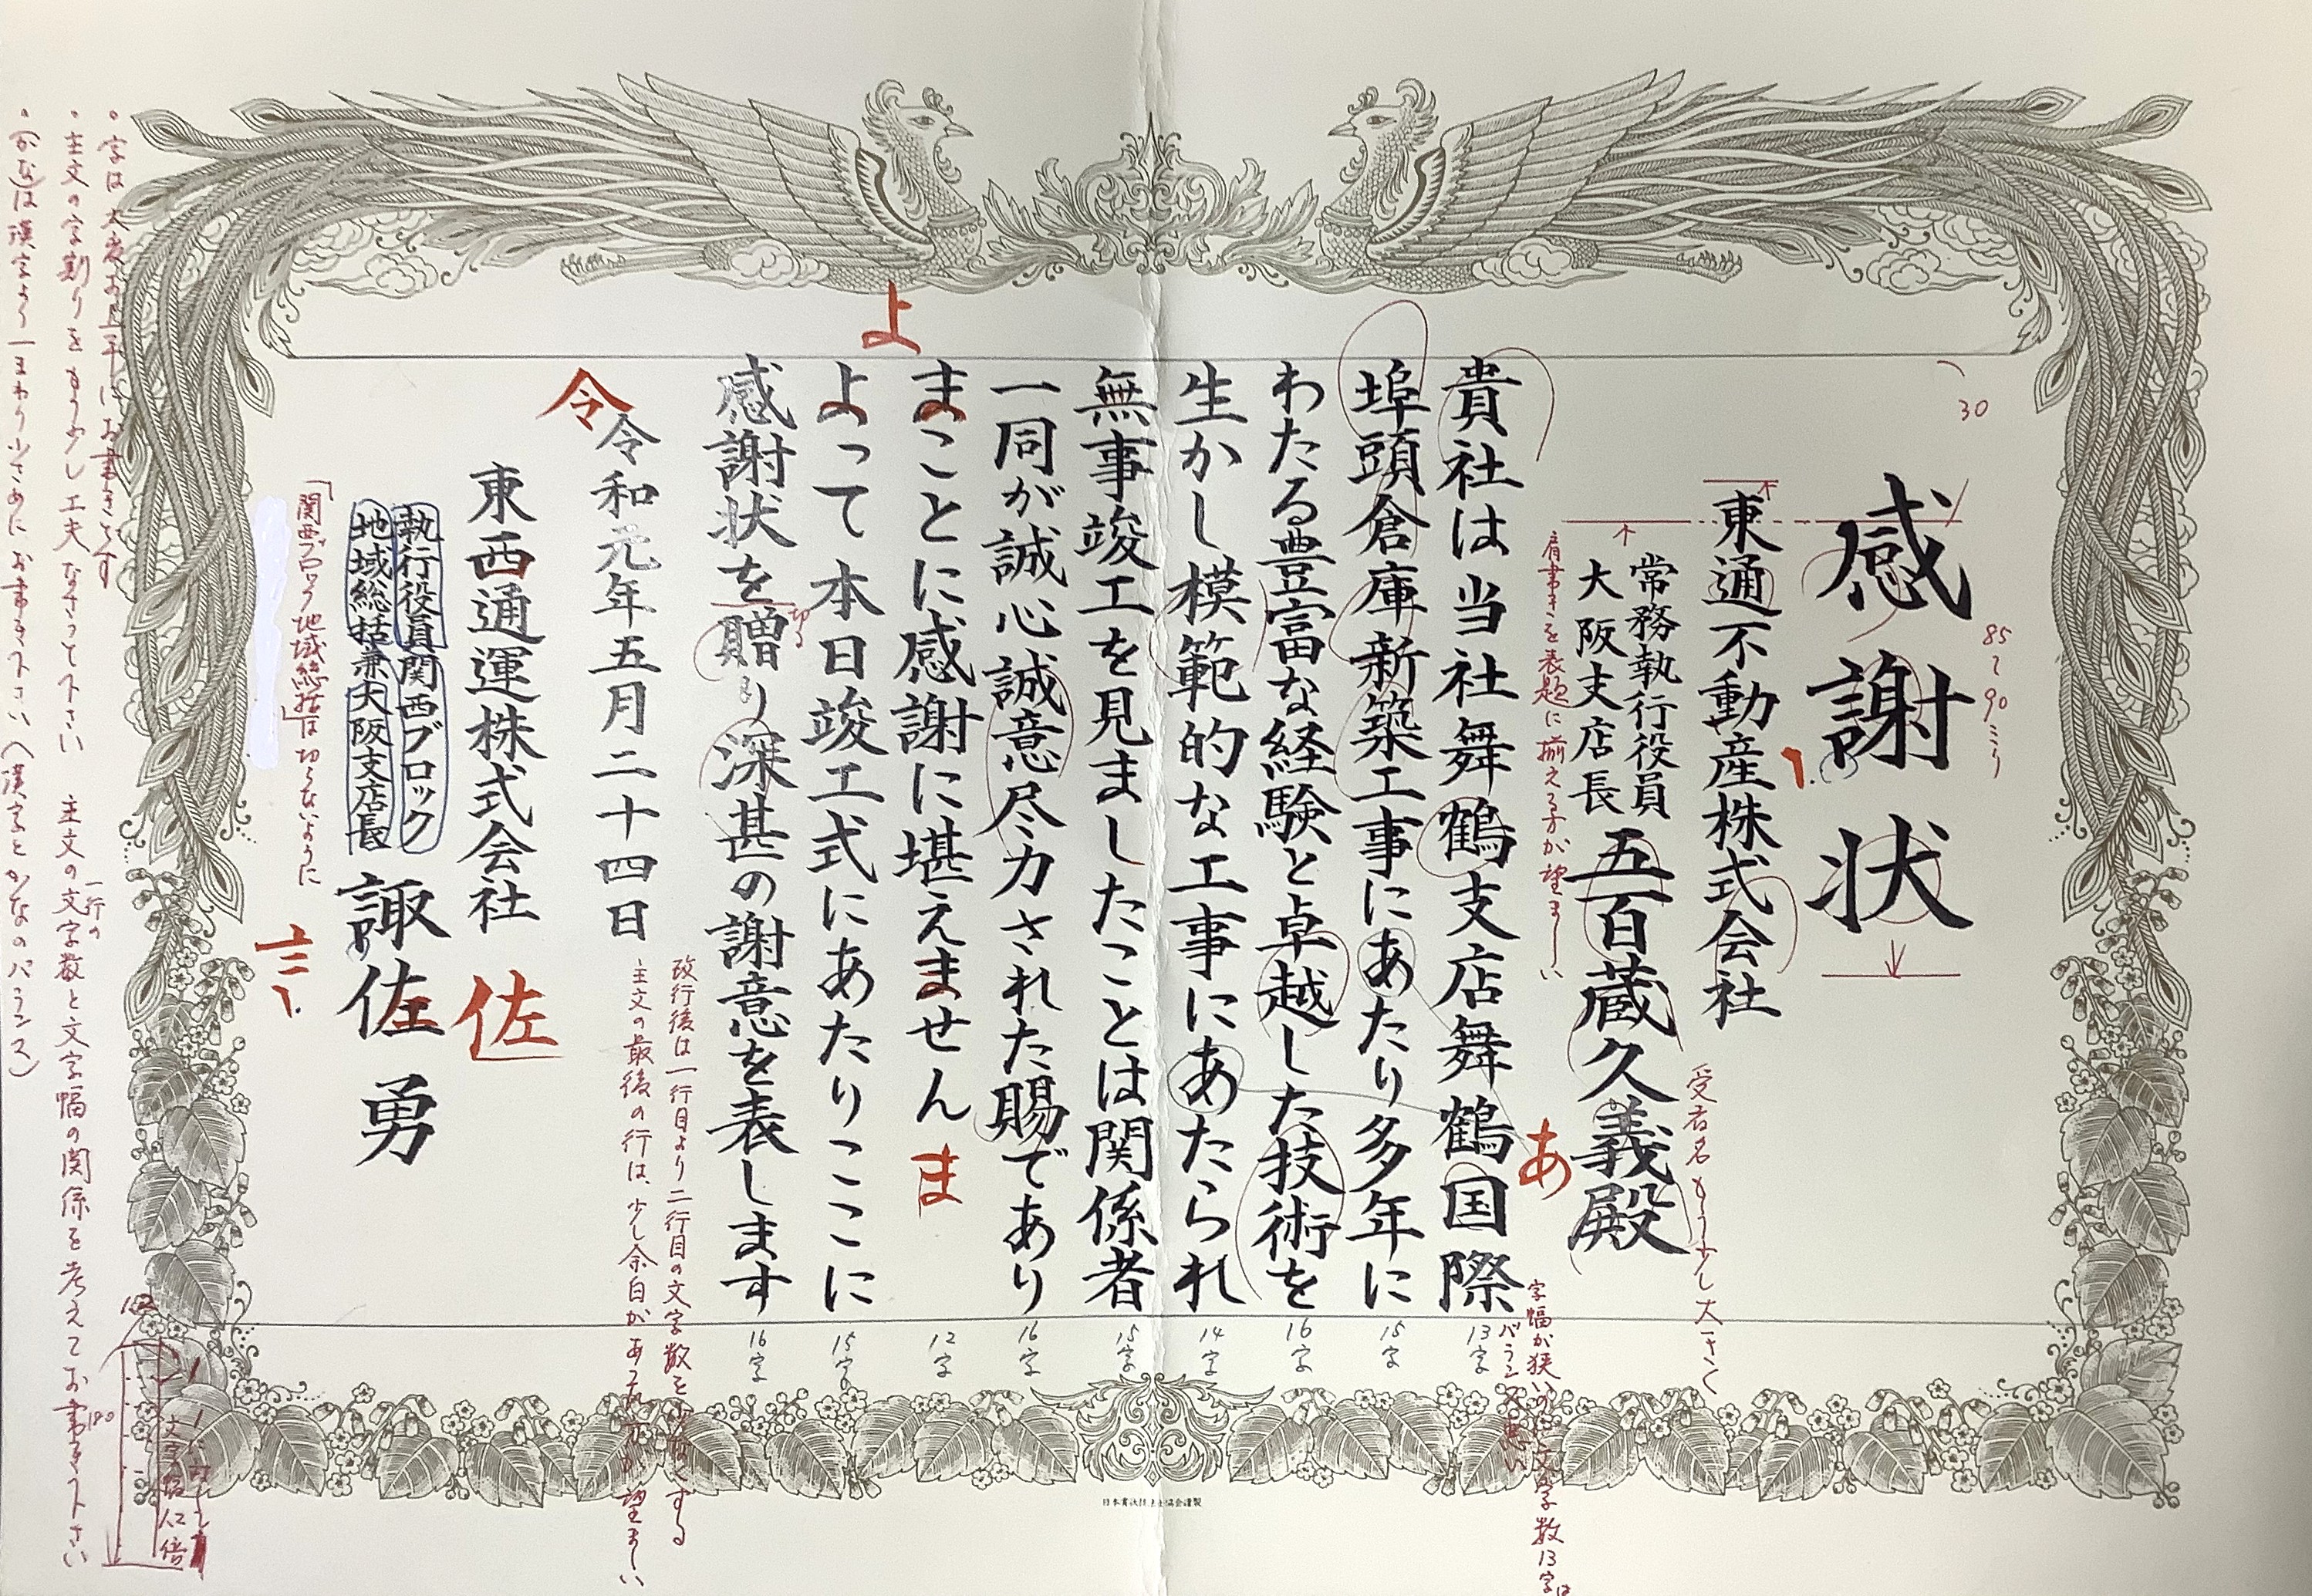 感謝状
東通不動産株式会社
常務執行役員
大阪支店長
五百蔵久義殿
貴社は当社舞鶴支店舞鶴国際
埠頭倉庫新築工事にあたり多年に
わたる豊富な経験と卓越した技術を
生かし模範的な工事にあたられ
無事竣工を見ましたことは関係者
一同が誠心誠意尽力された賜であり
まことに感謝に堪えません
よって本日竣工式にあたりここに
感謝状を贈り深甚の謝意を表します
令和元年五月二十四日
東西通運株式会社
執行役員関西ブロック
地域総括兼大阪支店長
諏佐勇
30
85〜90ミリ
肩書きを表題に揃える方が望ましい
受者名もう少し大きく
字幅が狭いのに文字数13字は
バランス悪い
あ
ま
よ
令
佐
言
切る
13字
15字
16字
14字
15字
16字
12字
15字
16字
改行後は一行目より二行目の文字数を少なくする
主文の最後の行は、少し余白があった方が望ましい
「関西ブロック地域総括」は切らないように
・字は大変お上手にお書きです
・主文の字割りをもう少し工夫なさって下さい 主文の一行の文字数と文字幅の関係を考えてお書き下さい
・かなは漢字より一まわり小さめにお書き下さい(漢字とかなのバランス)
180
日本賞状技法士協会謹製